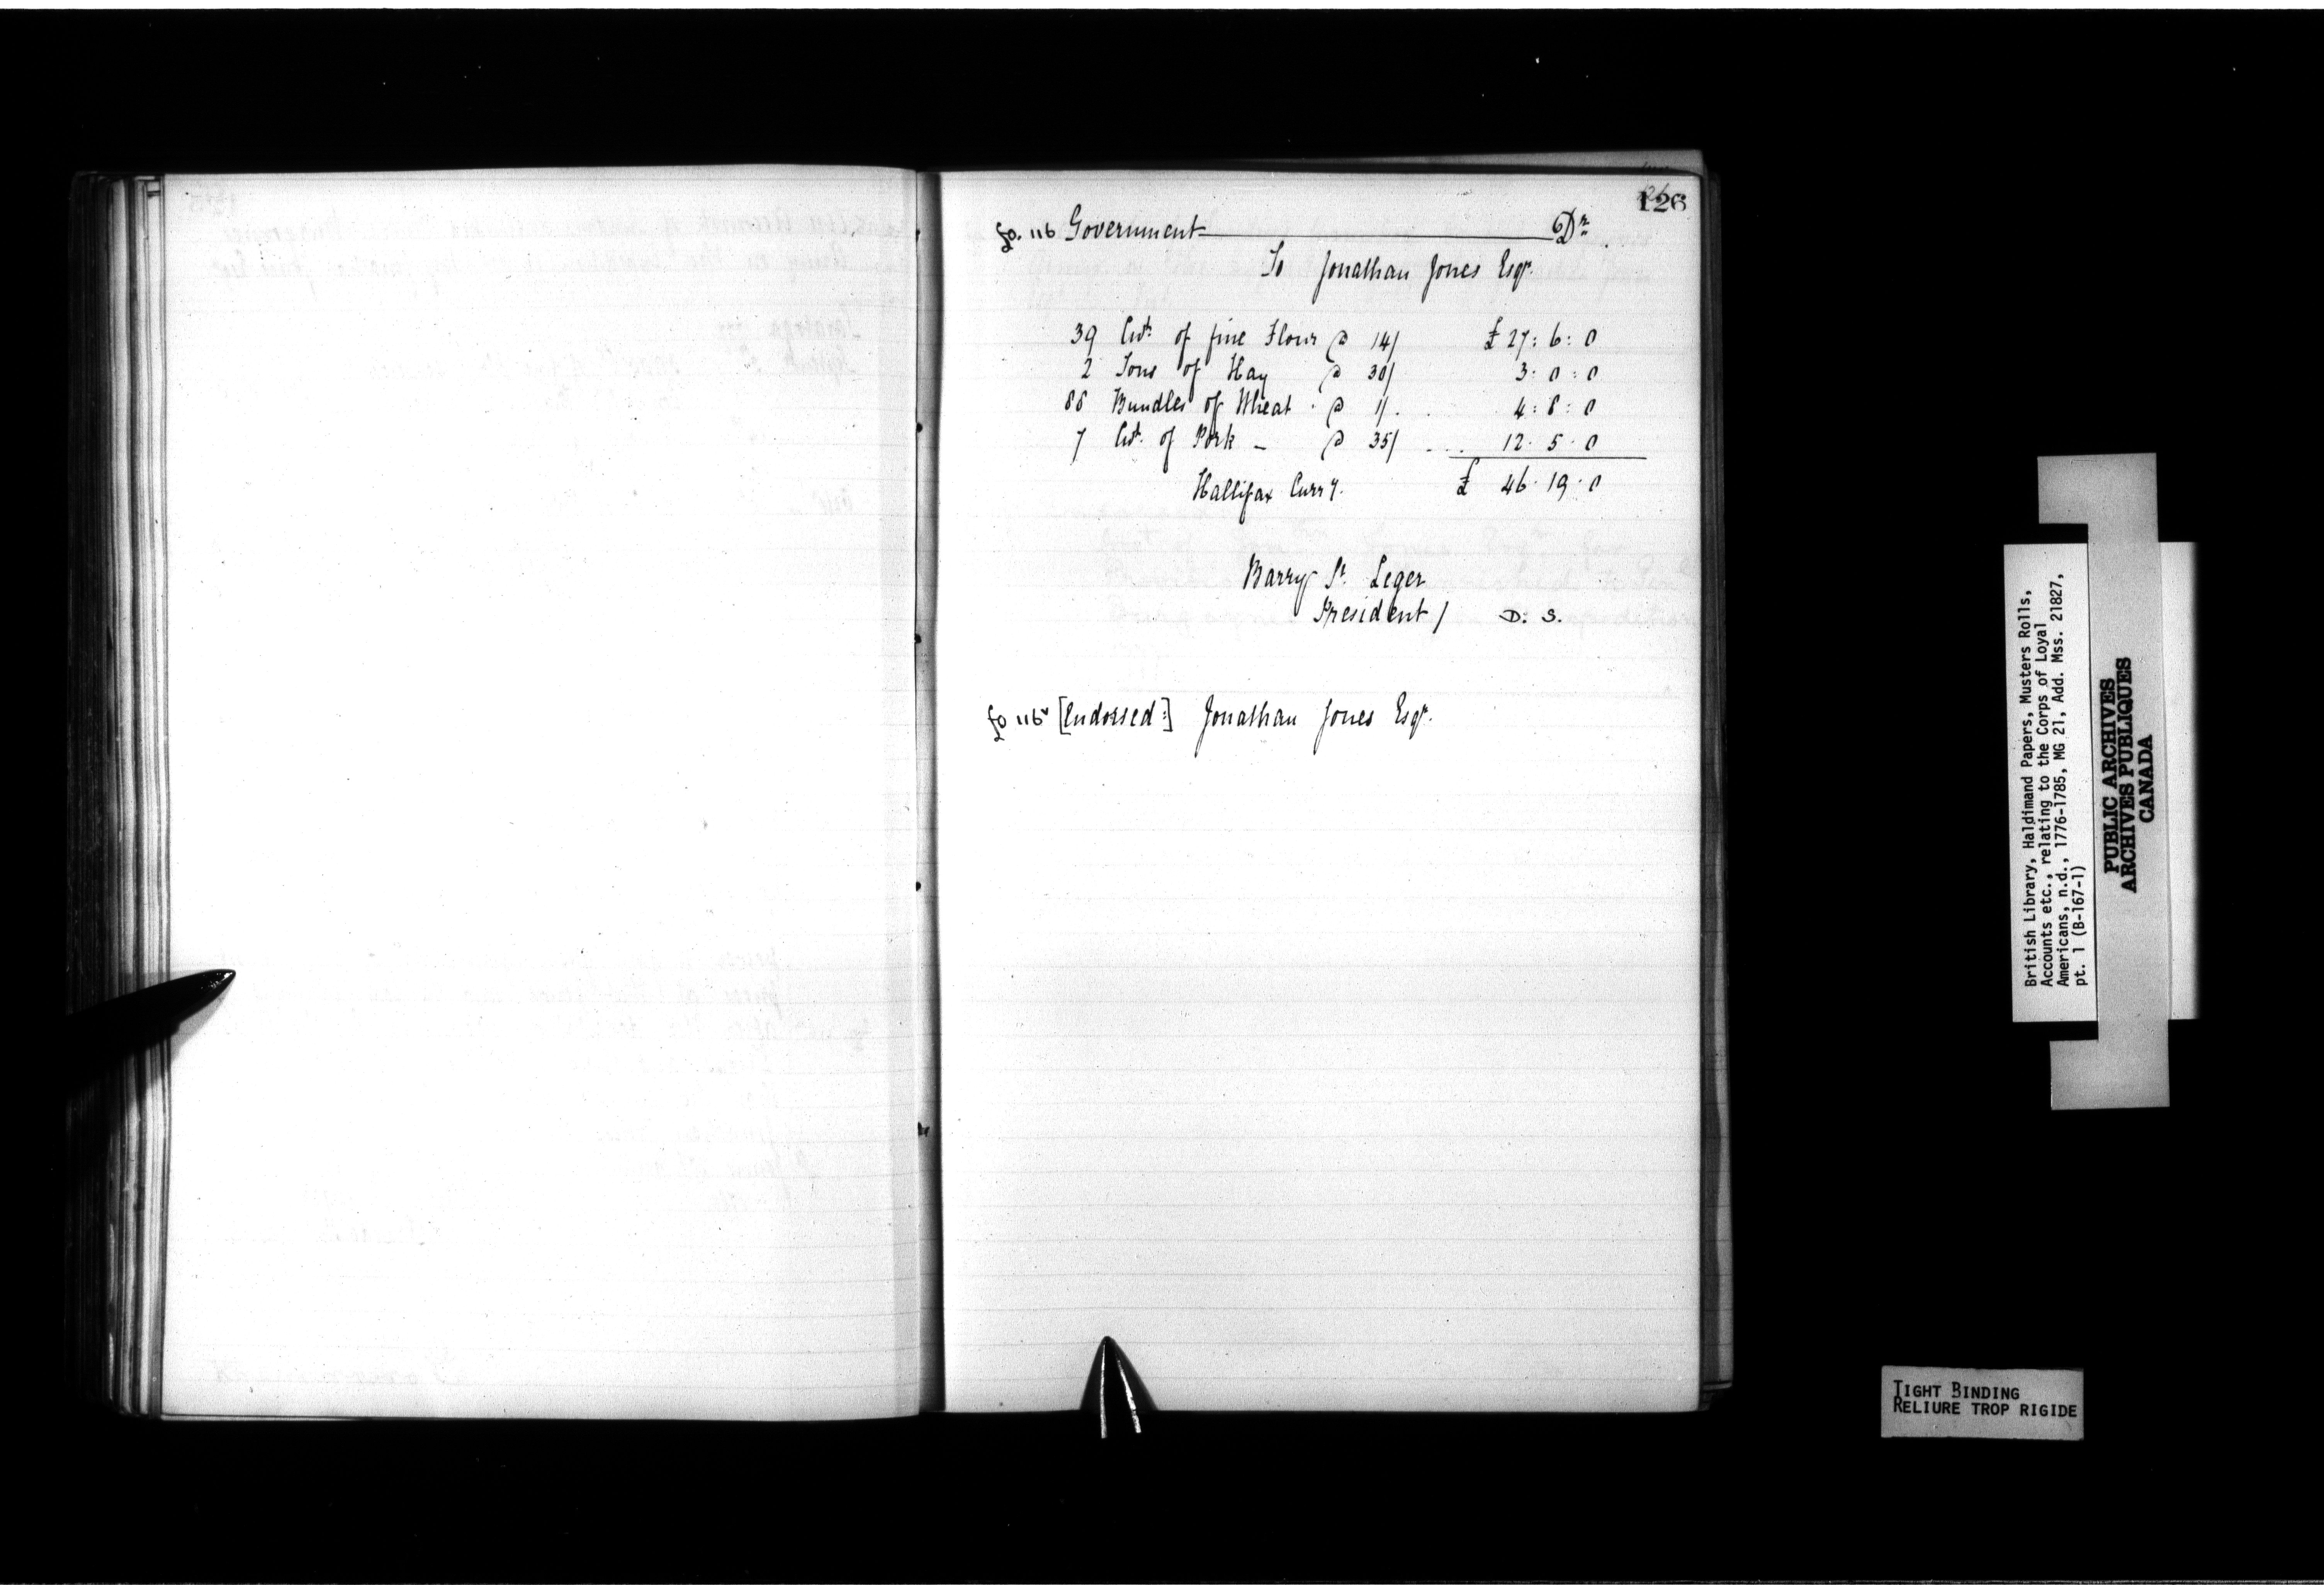 126
fo. 116 Government Dr.
To Jonathan Jones Esqr.
39 Cwt. of fine Flour @ 14/ £ 27 : 6 : 0
2 Tons of Hay @ 30/ 3 : 0 : 0
88 Bundles of Wheat @ 1/ 4 : 8 : 0
7 Cwt. of Pork @ 35/ 12 . 5 . 0
Hallifax Curry. £ 46 . 19 . 0
Barry St. Leger
President / D. S.
fo 116v [Endorsed:] Jonathan Jones Esqr.
British Library, Haldimand Papers, Musters Rolls,
Accounts etc., relating to the Corps of Loyal
Americans, n.d., 1776-1785, MG 21, Add. Mss. 21827,
pt. 1 (B-167-1)
PUBLIC ARCHIVES
ARCHIVES PUBLIQUES
CANADA
TIGHT BINDING
RELIURE TROP RIGIDE